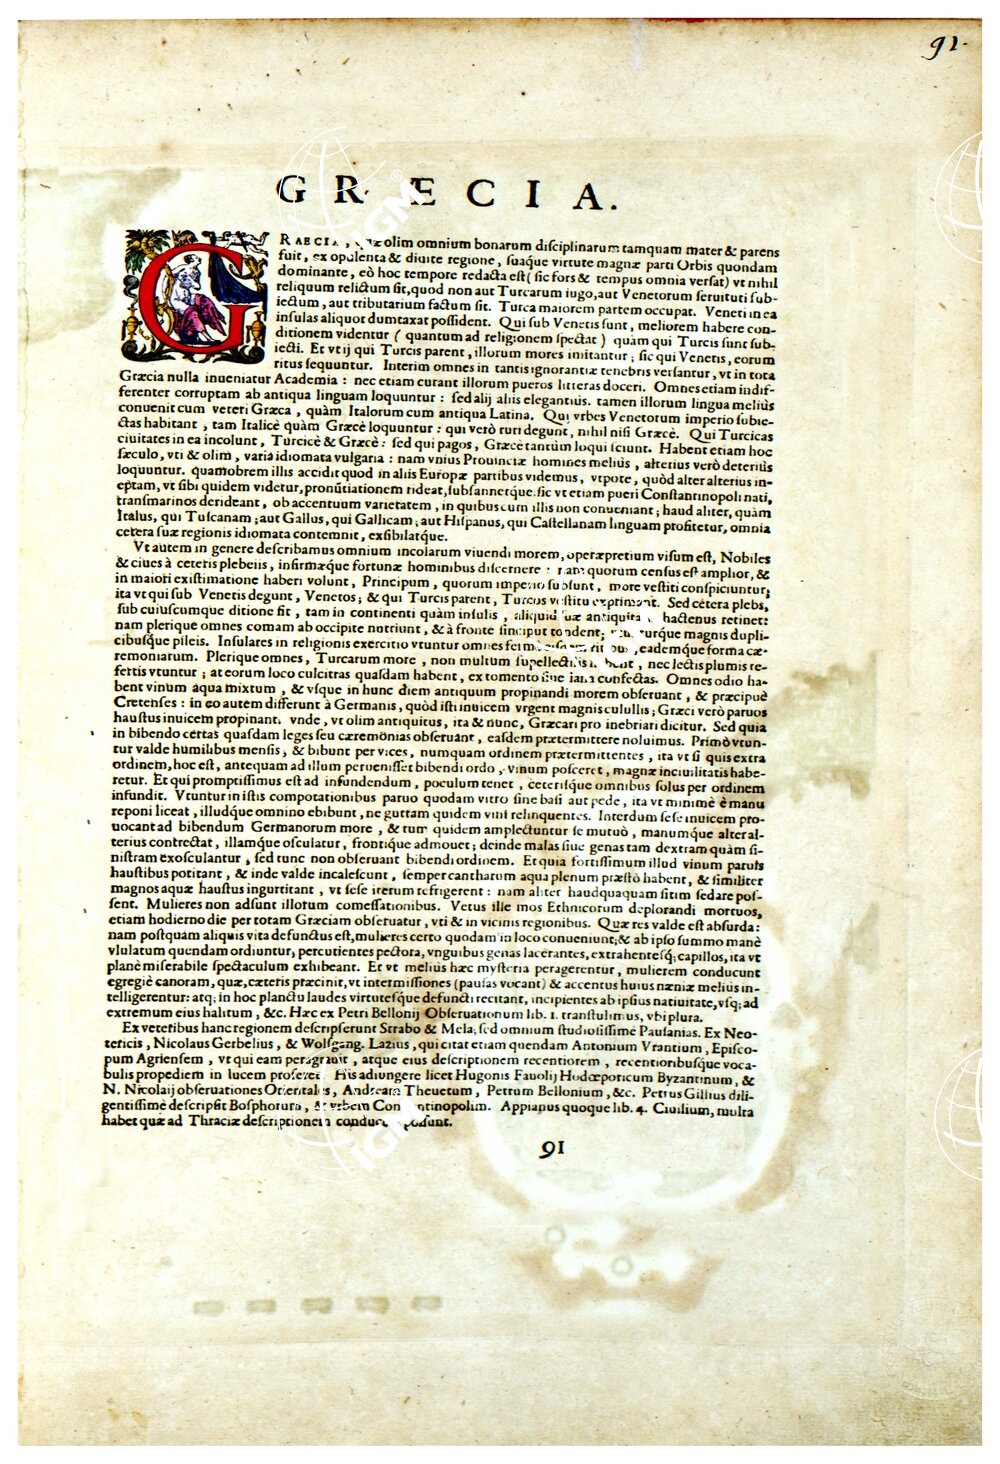 91.
GRÆCIA.
GRAECIA, quæ olim omnium bonarum disciplinarum tamquam mater & parens
fuit, ex opulenta & diuite regione, suaque virtute magnæ parti Orbis quondam
dominante, eò hoc tempore redacta est (sic fors & tempus omnia versat) vt nihil
reliquum relictum sit, quod non aut Turcarum iugo, aut Venetorum seruituti sub-
iectum, aut tributarium factum sit. Turca maiorem partem occupat. Veneti in ea
insulas aliquot dumtaxat possident. Qui sub Venetis sunt, meliorem habere con-
ditionem videntur (quantum ad religionem spectat) quàm qui Turcis sunt sub-
iecti. Et vt ij qui Turcis parent, illorum mores imitantur; sic qui Venetis, eorum
ritus sequuntur. Interim omnes in tantis ignorantiæ tenebris versantur, vt in tota
Græcia nulla inueniatur Academia: nec etiam curant illorum pueros litteras doceri. Omnes etiam indif-
ferenter corruptam ab antiqua linguam loquuntur: sed alij aliis elegantiùs. tamen illorum lingua meliùs
conuenit cum veteri Græca, quàm Italorum cum antiqua Latina. Qui vrbes Venetorum imperio subie-
ctas habitant, tam Italicè quàm Græcè loquuntur: qui verò ruri degunt, nihil nisi Græcè. Qui Turcicas
ciuitates in ea incolunt, Turcicè & Græcè: sed qui pagos, Græcè tantùm loqui sciunt. Habent etiam hoc
sæculo, vti & olim, varia idiomata vulgaria: nam vnius Prouinciæ homines meliùs, alterius verò deteriùs
loquuntur. quamobrem illis accidit quod in aliis Europæ partibus videmus, vtpote, quòd alter alterius in-
eptam, vt sibi quidem videtur, pronũtiationem rideat, subsannetque. sic vt etiam pueri Constantinopoli nati,
transmarinos derideant, ob accentuum varietatem, in quibus cum illis non conueniant; haud aliter, quàm
Italus, qui Tuscanam; aut Gallus, qui Gallicam; aut Hispanus, qui Castellanam linguam profitetur, omnia
cetera suæ regionis idiomata contemnit, exsibilatque.
Vt autem in genere describamus omnium incolarum viuendi morem, operæpretium visum est, Nobiles
& ciues à ceteris plebeiis, infirmæque fortunæ hominibus discernere: nam quotum census est amplior, &
in maiori existimatione haberi volunt, Principum, quorum imperio subsunt, more vestiti conspiciuntur;
ita vt qui sub Venetis degunt, Venetos; & qui Turcis parent, Turcos vestitu exprimant. Sed cetera plebs,
sub cuiuscumque ditione sit, tam in continenti quàm insulis, aliquid suæ antiquita hactenus retinet:
nam plerique omnes comam ab occipite nutriunt, & à fronte sinciput tondent; vtunturque magnis dupli-
cibusque pileis. Insulares in religionis exercitio vtuntur omnes ferme iisdem ritibus, eademque forma cæ-
remoniarum. Plerique omnes, Turcarum more, non multum supellectilis habent, nec lectis plumis re-
fertis vtuntur; at eorum loco culcitras quasdam habent, ex tomento siue lana confectas. Omnes odio ha-
bent vinum aqua mixtum, & vsque in hunc diem antiquum propinandi morem obseruant, & præcipuè
Cretenses: in eo autem differunt à Germanis, quòd isti inuicem vrgent magnis culullis; Græci verò paruos
haustus inuicem propinant. vnde, vt olim antiquitus, ita & nunc, Græcari pro inebriari dicitur. Sed quia
in bibendo certas quasdam leges seu cæremonias obseruant, easdem prætermittere noluimus. Primò vtun-
tur valde humilibus mensis; & bibunt per vices, numquam ordinem prætermittentes, ita vt si quis extra
ordinem, hoc est, antequam ad illum peruenisset bibendi ordo, vinum posceret, magnæ inciuilitatis habe-
retur. Et qui promptissimus est ad infundendum, poculum tenet, ceterisque omnibus solus per ordinem
infundit. Vtuntur in istis compotationibus paruo quodam vitro sine basi aut pede, ita vt minimè è manu
reponi liceat, illudque omnino ebibunt, ne guttam quidem vini relinquentes. Interdum sese inuicem pro-
uocant ad bibendum Germanorum more, & tum quidem amplectuntur se mutuò, manumque alter al-
terius contrectat, illamque osculatur, frontique admouet; deinde malas siue genas tam dextram quàm si-
nistram exosculantur, sed tunc non obseruant bibendi ordinem. Et quia fortissimum illud vinum paruis
haustibus potitant, & inde valde incalescunt, semper cantharum aqua plenum præstò habent, & similiter
magnos aquæ haustus ingurgitant, vt sese iterum refrigerent: nam aliter haudquaquam sitim sedare pos-
sent. Mulieres non adsunt illorum comessationibus. Vetus ille mos Ethnicorum deplorandi mortuos,
etiam hodierno die per totam Græciam obseruatur, vti & in vicinis regionibus. Quæ res valde est absurda:
nam postquam aliquis vita defunctus est, mulieres certo quodam in loco conueniunt; & ab ipso summo manè
vlulatum quendam ordiuntur, percutientes pectora, vnguibus genas lacerantes, extrahentesq; capillos, ita vt
planè miserabile spectaculum exhibeant. Et vt melius hæc mysteria peragerentur, mulierem conducunt
egregiè canoram, quæ, cæteris præcinit, vt intermissiones (pausas vocant) & accentus huius næniæ melius in-
telligerentur: atq; in hoc planctu laudes virtutesque defuncti recitant, incipientes ab ipsius natiuitate, vsq; ad
extremum eius halitum, &c. Hæc ex Petri Bellonij Obseruationum lib. 1. transtulimus, vbi plura.
Ex veteribus hanc regionem descripserunt Strabo & Mela; sed omnium studiosissimè Pausanias. Ex Neo-
tericis, Nicolaus Gerbelius, & Wolfgang. Lazius, qui citat etiam quendam Antonium Vrantium, Episco-
pum Agriensem, vt qui eam peragrauit, atque eius descriptionem recentiorem, recentioribusque voca-
bulis propediem in lucem proferet. His adiungere licet Hugonis Fauolij Hodœporicum Byzantinum, &
N. Nicolaij obseruationes Orientales, Andream Theuetum, Petrum Bellonium, &c. Petrus Gillius dili-
gentissimè descripsit Bosphorum, & vrbem Constantinopolim. Appianus quoque lib. 4. Ciuilium, multa
habet quæ ad Thraciæ descriptionem conducere possunt.
91
IGM
IGM